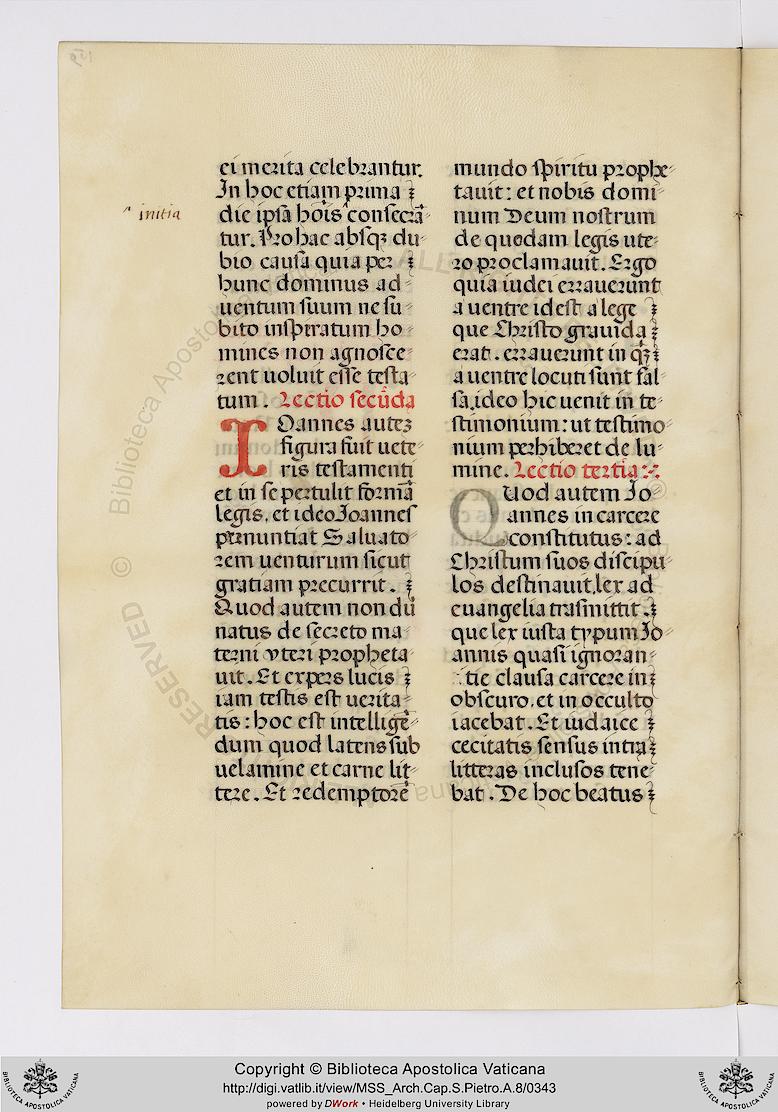 ^ initia
ei merita celebrantur.
In hoc etiam prima
die ipsa hoīs ^ consecrā-
tur. Pro hac absqz du-
bio causa quia per
hunc dominus ad-
uentum suum ne su-
bito inspiratum ho-
mines non agnosce-
rent uoluit esse testa-
tum. Lectio secūda
IOannes autez
figura fuit uete-
ris testamenti
et in se pertulit formā
legis. et ideo Ioannes
pernuntiat Saluato-
rem uenturum sicut
gratiam precurrit.
Quod autem non dū
natus de secreto ma-
terni vteri propheta-
uit. Et expers lucis
iam testis est uerita-
tis: hoc est intelligē-
dum quod latens sub
uelamine et carne lit-
tere. Et redemptorē
mundo spiritu prophe-
tauit: et nobis domi-
num Deum nostrum
de quodam legis ute-
ro proclamauit. Ergo
quia iudei errauerunt
a uentre idest a lege
que Christo grauida
erat. errauerunt in qz
a uentre locuti sunt fal-
sa. ideo hic uenit in te-
stimonium: ut testimo-
nium perhiberet de lu-
mine. Lectio tertia
QUod autem Io-
annes in carcere
constitutus: ad
Christum suos discipu-
los destinauit. lex ad
euangelia trāsmittit.
que lex iusta typum Io-
annis quasi ignoran-
tie clausa carcere in
obscuro. et in occulto
iacebat. Et iudaice
cecitatis sensus intra
litteras inclusos tene-
bat. De hoc beatus
© Biblioteca Apostolica Vaticana
RESERVED
Copyright © Biblioteca Apostolica Vaticana
http://digi.vatlib.it/view/MSS_Arch.Cap.S.Pietro.A.8/0343
powered by DWork • Heidelberg University Library
BIBLIOTECA APOSTOLICA VATICANA
BIBLIOTECA APOSTOLICA VATICANA